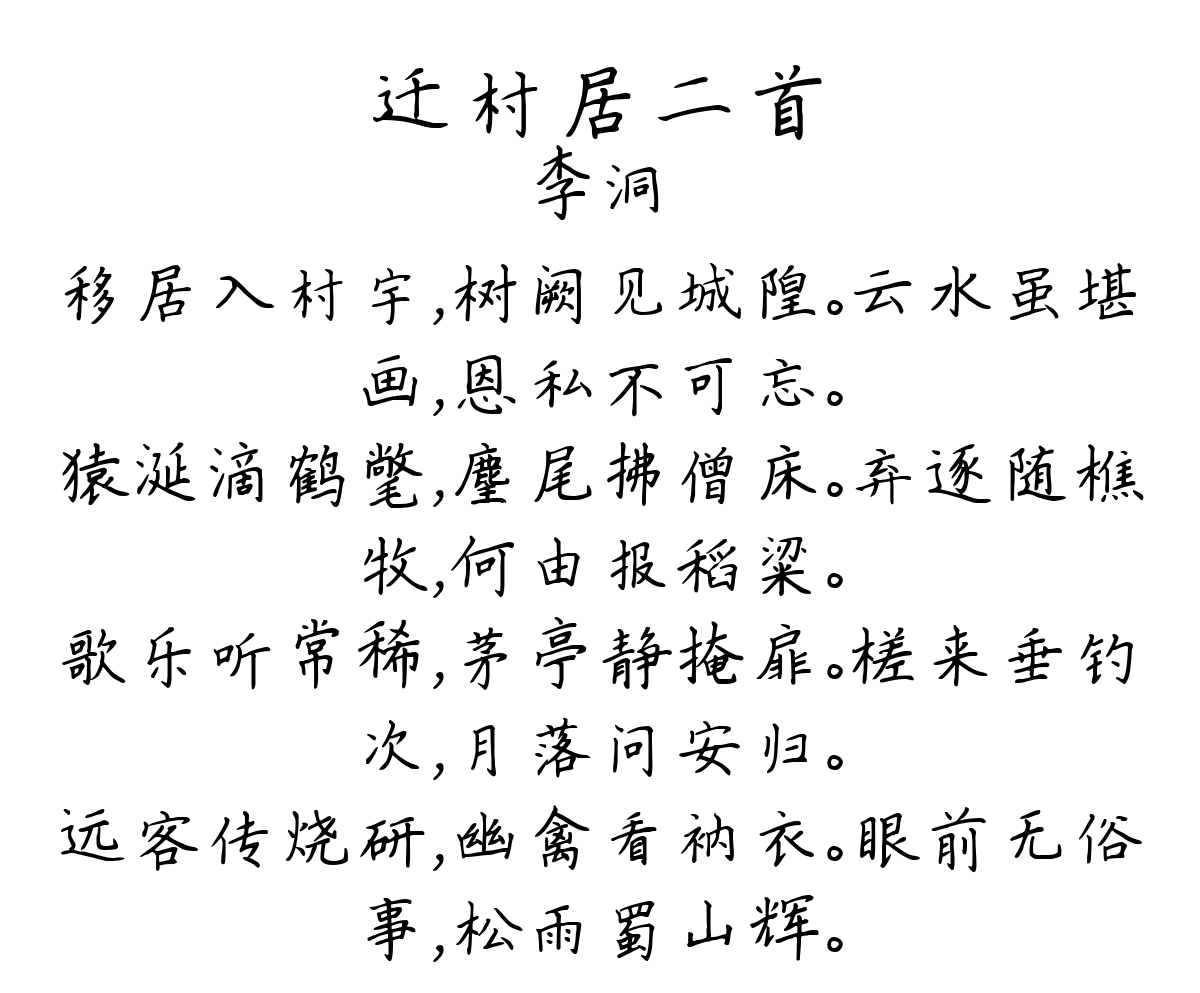 迁村居二首
李洞
移居入村宇,树阙见城隍。云水虽堪
画,恩私不可忘。
猿涎滴鹤氅,麈尾拂僧床。弃逐随樵
牧,何由报稻粱。
歌乐听常稀,茅亭静掩扉。槎来垂钓
次,月落问安归。
远客传烧研,幽禽看衲衣。眼前无俗
事,松雨蜀山辉。